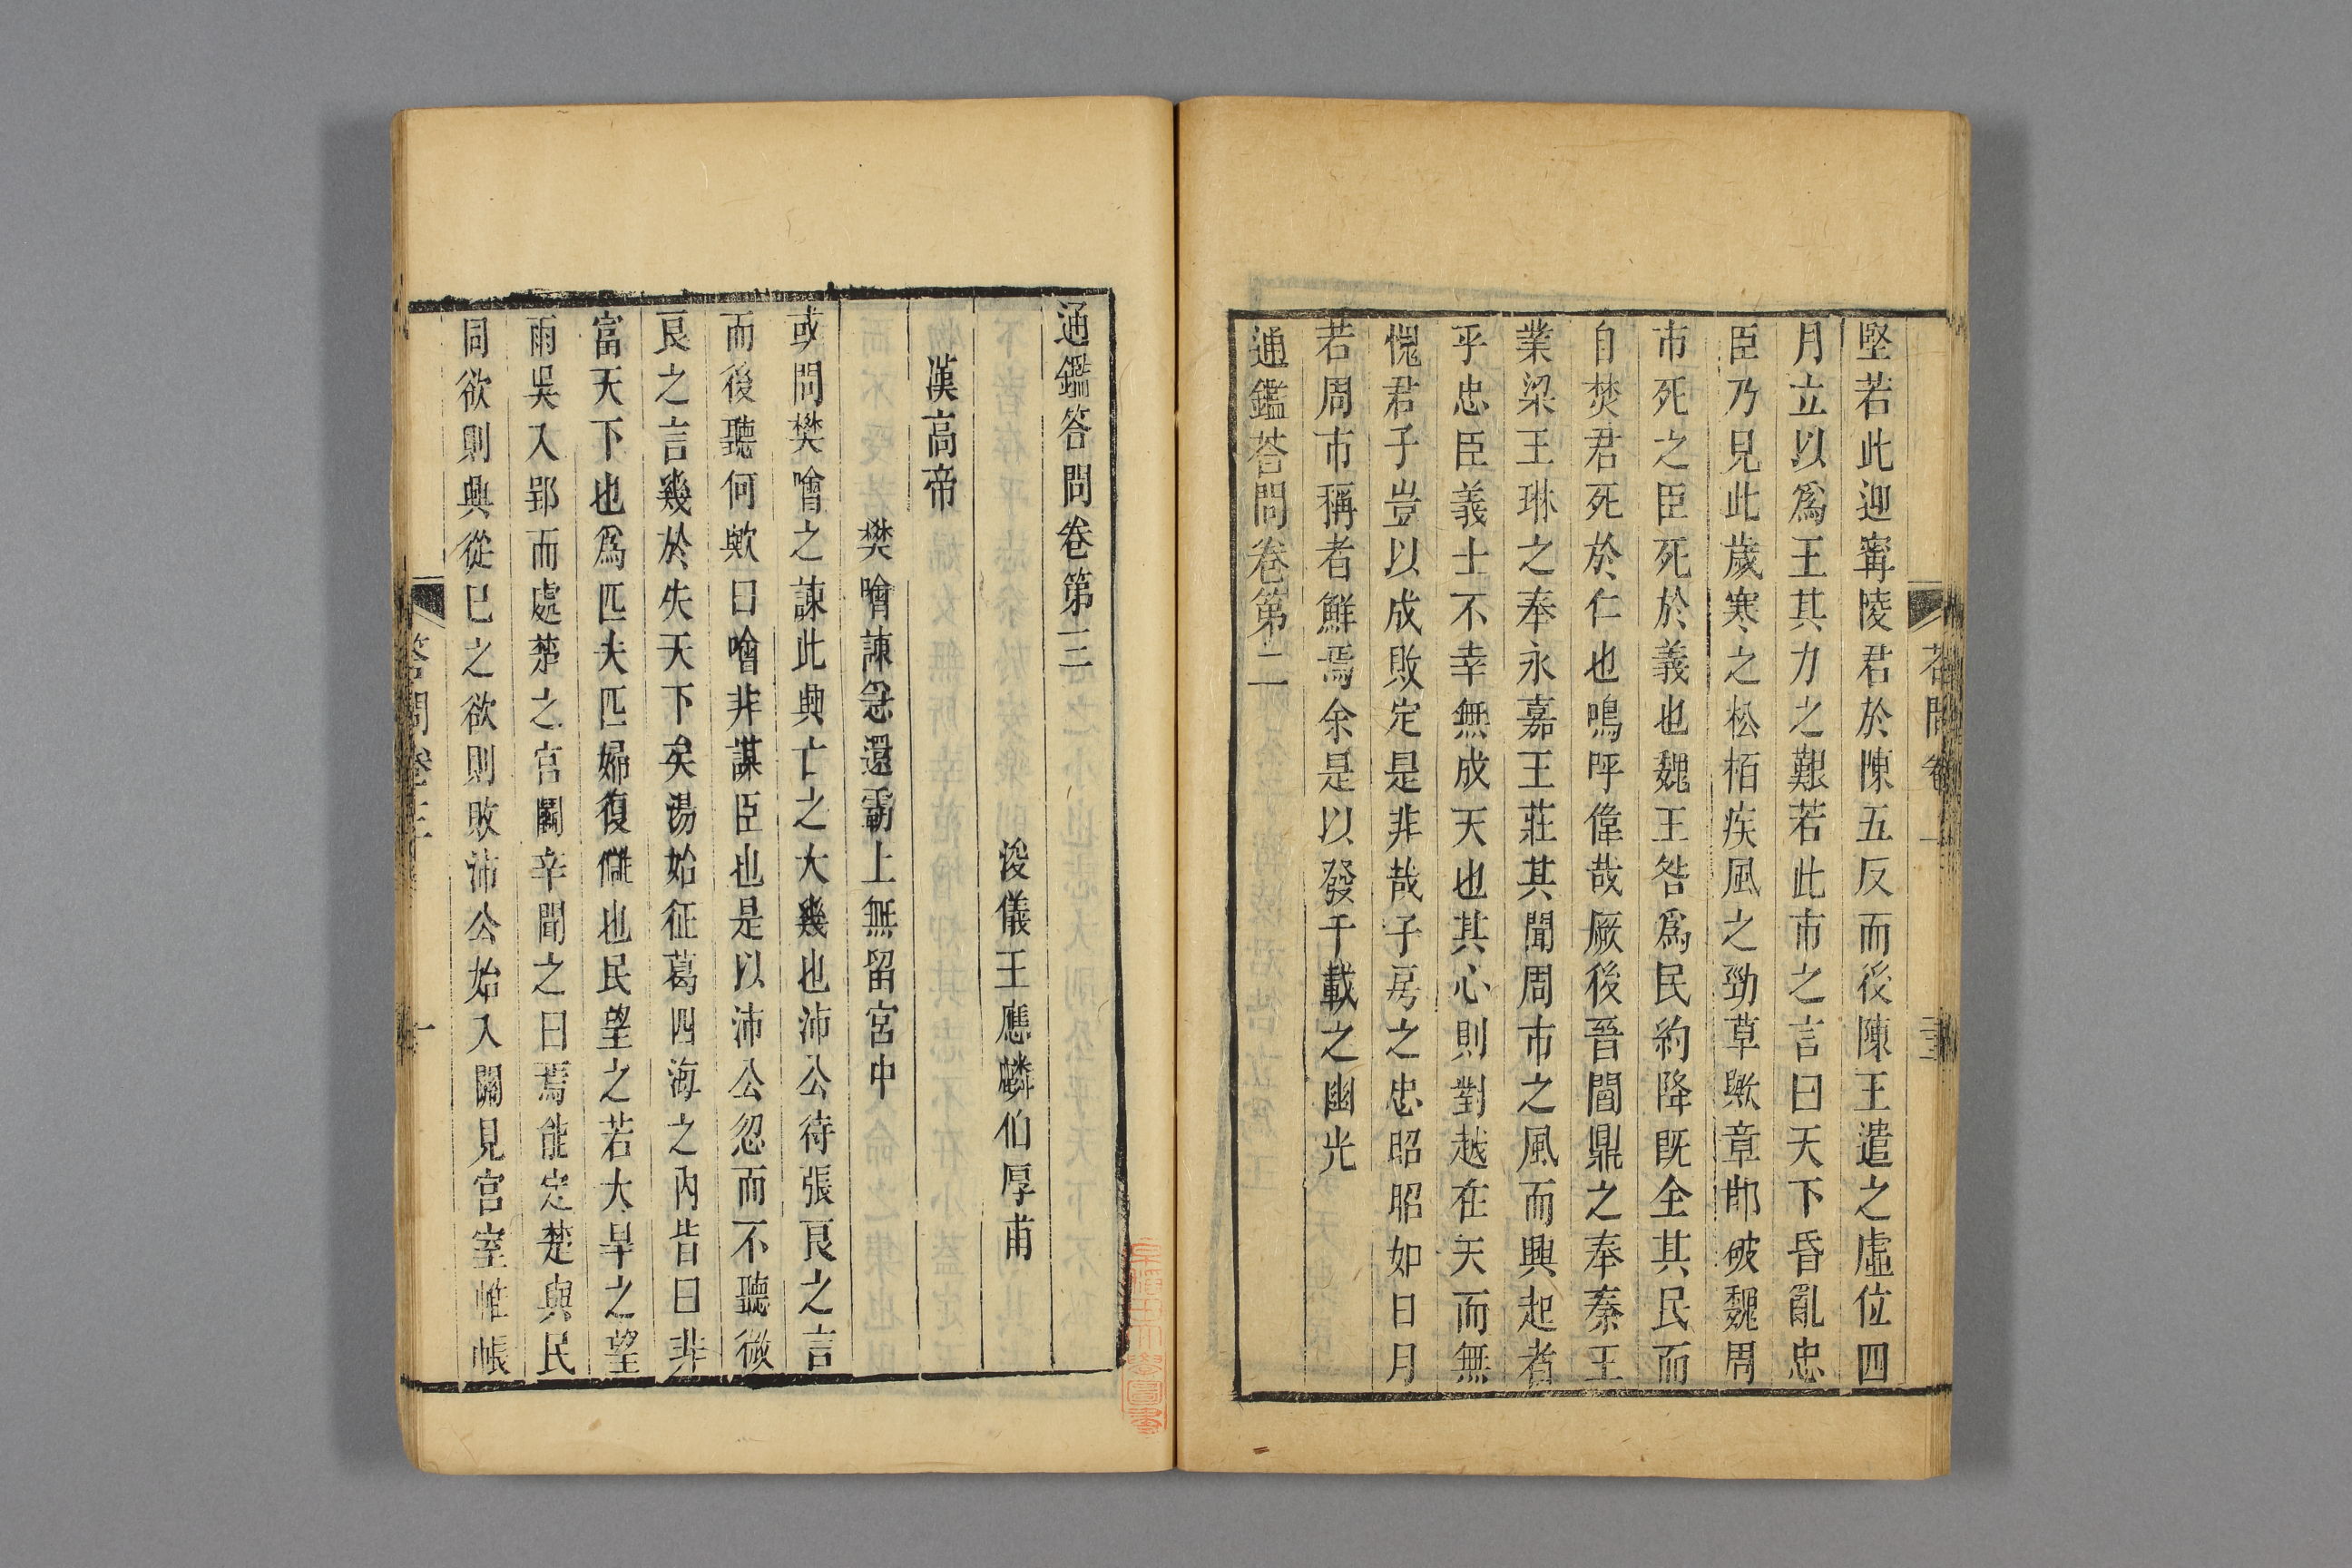 堅若此迎甯陵君於陳五反而後陳王遣之虛位四
月立以爲王其力之艱若此市之言曰天下昏亂忠
臣乃見此歲寒之松栢疾風之勁草歟章邯破魏周
市死之臣死於義也魏王咎爲民約降既全其民而
自焚君死於仁也嗚呼偉哉厥後晉閻鼎之奉秦王
業梁王琳之奉永嘉王莊其聞周市之風而興起者
乎忠臣義士不幸無成天也其心則對越在天而無
愧君子豈以成敗定是非哉子房之忠昭昭如日月
若周市稱者鮮焉余是以發千載之幽光
通鑑荅問卷第二
通鑑答問卷第三
浚儀王應麟伯厚甫
漢高帝
樊噲諫沛公還霸上無留宮中
或問樊噲之諫此興亡之大幾也沛公待張良之言
而後聽何歟曰噲非謀臣也是以沛公忽而不聽微
良之言幾於失天下矣湯始征葛四海之內皆曰非
富天下也爲匹夫匹婦復讎也民望之若大旱之望
雨吳入郢而處楚之宮鬭辛聞之曰焉能定楚與民
同欲則興從己之欲則敗沛公始入關見宮室帷帳
答問卷三
一